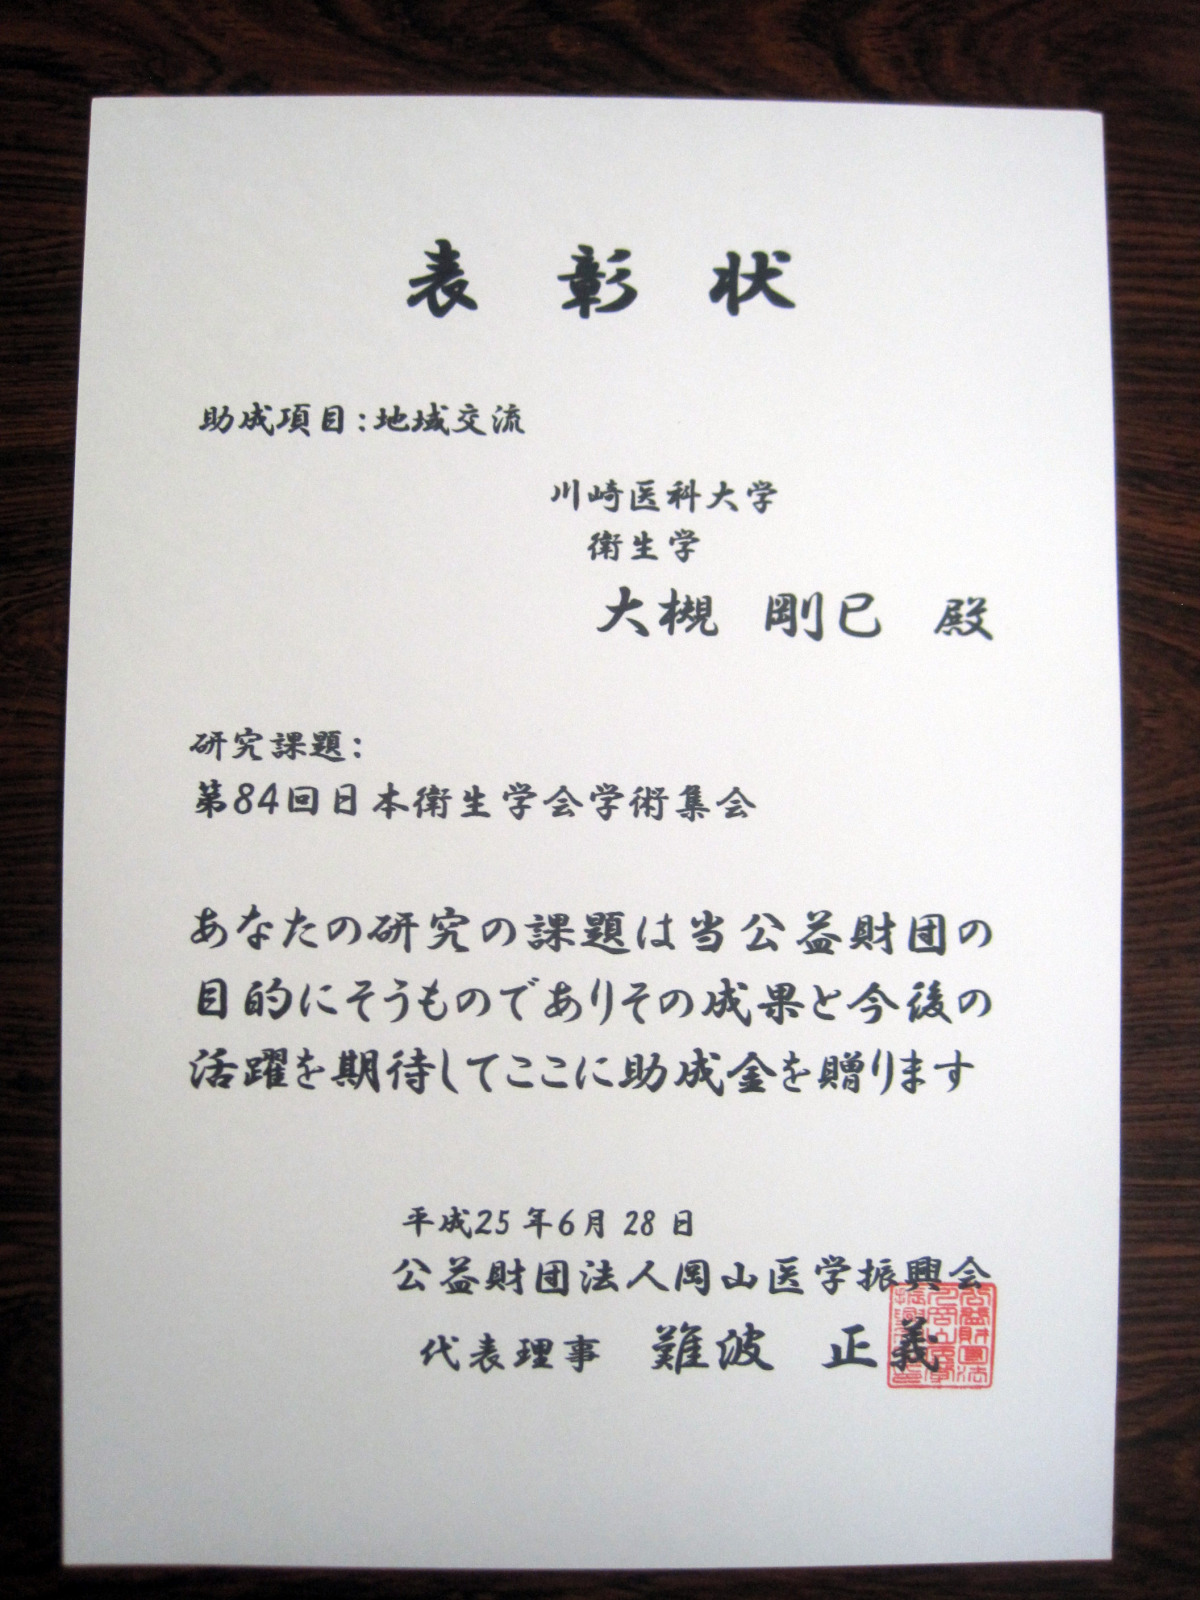 表彰状
助成項目:地域交流
川崎医科大学
衛生学
大槻 剛巳 殿
研究課題:
第84回日本衛生学会学術集会
あなたの研究の課題は当公益財団の
目的にそうものでありその成果と今後の
活躍を期待してここに助成金を贈ります
平成25年6月28日
公益財団法人岡山医学振興会
代表理事 難波 正義